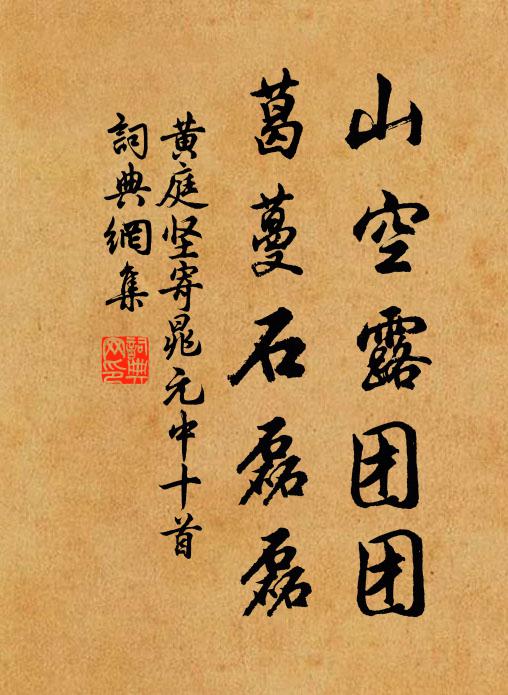 山空露团团
葛蔓石磊磊
黄庭坚寄晁元中十首
詞典網集
詞典网印